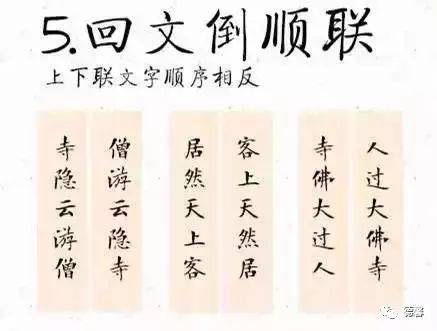 5.回文倒顺联
上下联文字顺序相反
僧游云隐寺
寺隐云游僧
客上天然居
居然天上客
人过大佛寺
寺佛大过人
德馨